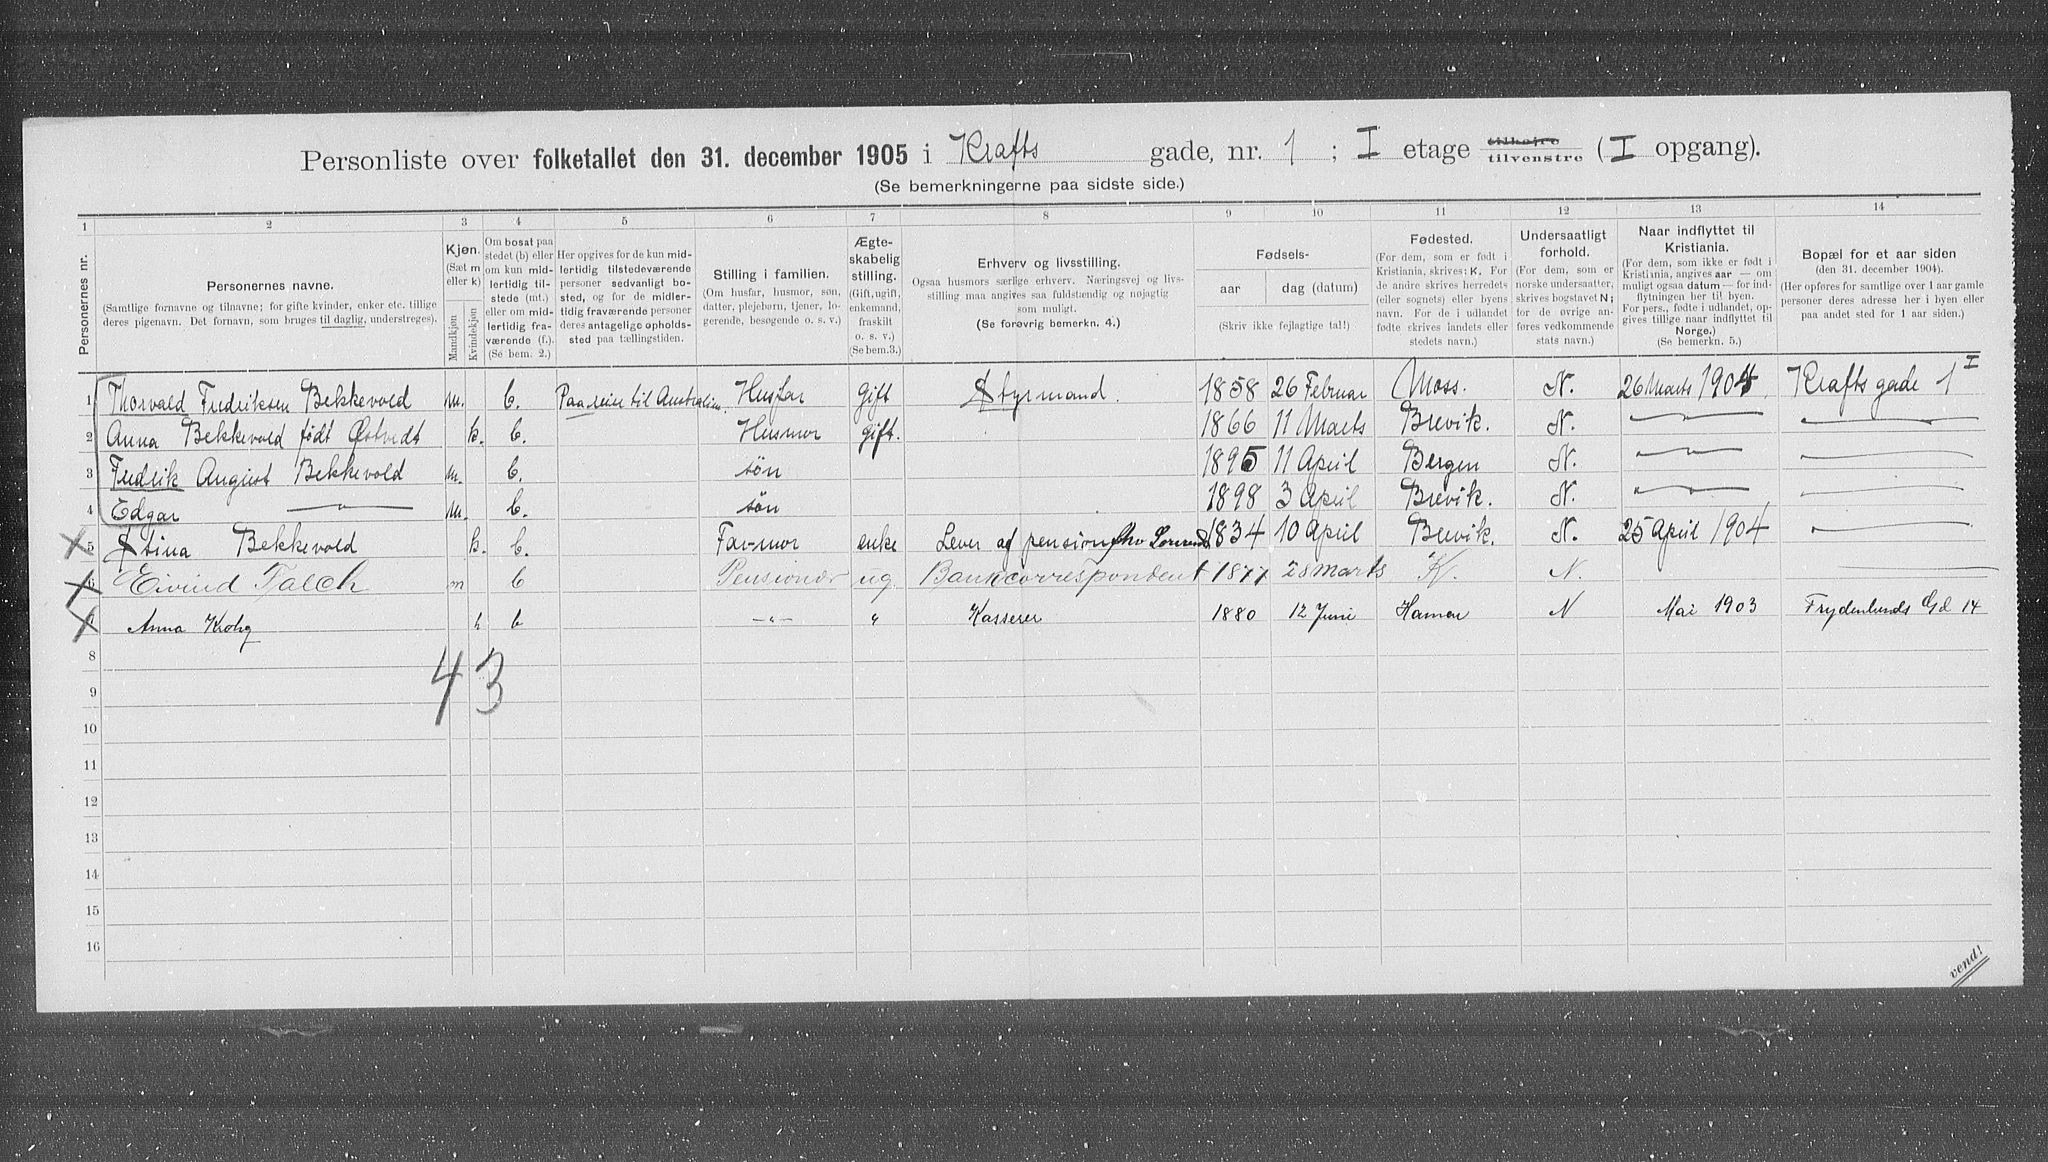 Personliste over folketallet den 31. december 1905 i Krafts gade, nr. 1 ; I etage tilhøjre tilvenstre (I opgang).
(Se bemerkningerne paa sidste side.)
1 2 3 4 5 6 7 8 9 10 11 12 13 14
Personernes nr.
Personernes navne.
(Samtlige fornavne og tilnavne; for gifte kvinder, enker etc. tillige
deres pigenavn. Det fornavn, som bruges til daglig, understreges).
Kjøn.
(Sæt m
eller k)
Mandkjøn
Kvindekjøn
Om bosat paa
stedet (b) eller
om kun mid-
lertidig til-
stede (mt.)
eller om mid-
lertidig fra-
værende (f.).
(Se bem. 2.)
Her opgives for de kun mid-
lertidig tilstedeværende
personer sedvanligt bo-
sted, og for de midler-
tidig fraværende personer
deres antagelige opholds-
sted paa tællingstiden.
Stilling i familien.
(Om husfar, husmor, søn,
datter, plejebørn, tjener, lo-
gerende, besøgende o. s. v.)
Ægte-
skabelig
stilling.
(Gift, ugift,
enkemand,
fraskilt
o. s. v.)
(Se bem.3.)
Erhverv og livsstilling.
Ogsaa husmors særlige erhverv. Næringsvej og livs-
stilling maa angives saa fuldstændig og nøjagtig
som muligt.
(Se forøvrig bemerkn. 4.)
Fødsels-
aar dag (datum)
(Skriv ikke fejlagtige tal!)
Fødested.
(For dem, som er født i
Kristiania, skrives: K. For
de andre skrives herredets
(eller sognets) eller byens
navn. For de i udlandet
fødte skrives landets eller
stedets navn.)
Undersaatligt
forhold.
(For dem, som er
norske undersaatter,
skrives bogstavet N;
for de øvrige an-
føres vedkommende
stats navn.)
Naar indflyttet til
Kristiania.
(For dem, som ikke er født i
Kristiania, angives aar — om
muligt ogsaa datum — for ind-
flytningen her til byen.
For pers., fødte i udlandet, op-
gives tillige naar indflyttet til
Norge.)
(Se bemerkn. 5.)
Bopæl for et aar siden
(den 31. december 1904).
(Her opføres for samtlige over 1 aar gamle
personer deres adresse her i byen eller
paa andet sted for 1 aar siden.)
1 Thorvald Fredriksen Bekkevold m. b. Paa reise til Australien Husfar Gift Styrmand. 1858 26 Februar Moss. N. 26 Marts 1904 Krafts gade 1 I
2 Anna Bekkevold født Østvedt k. b. Husmor gift. 1866 11 Marts Brevik. N. — —
3 Fredrik August Bekkevold m. b. søn 1895 11 April Bergen N. — —
4 Edgar — m. b. søn 1898 3 April Brevik. N. — —
5 Stina Bekkevold k. b. Farmor enke Lever af pension 1834 10 April Brevik. N. 25 April 1904 —
6 Eivind Falch m b Pensionær ug Bankcorrespondent 1877 28 Marts K. N. —
7 Anna Krohg k b —"— " Kasserer 1880 12 Juni Hamar N Mai 1903 Frydenlunds Gd 14
8
4 3
9
10
11
12
13
14
15
16
vend!